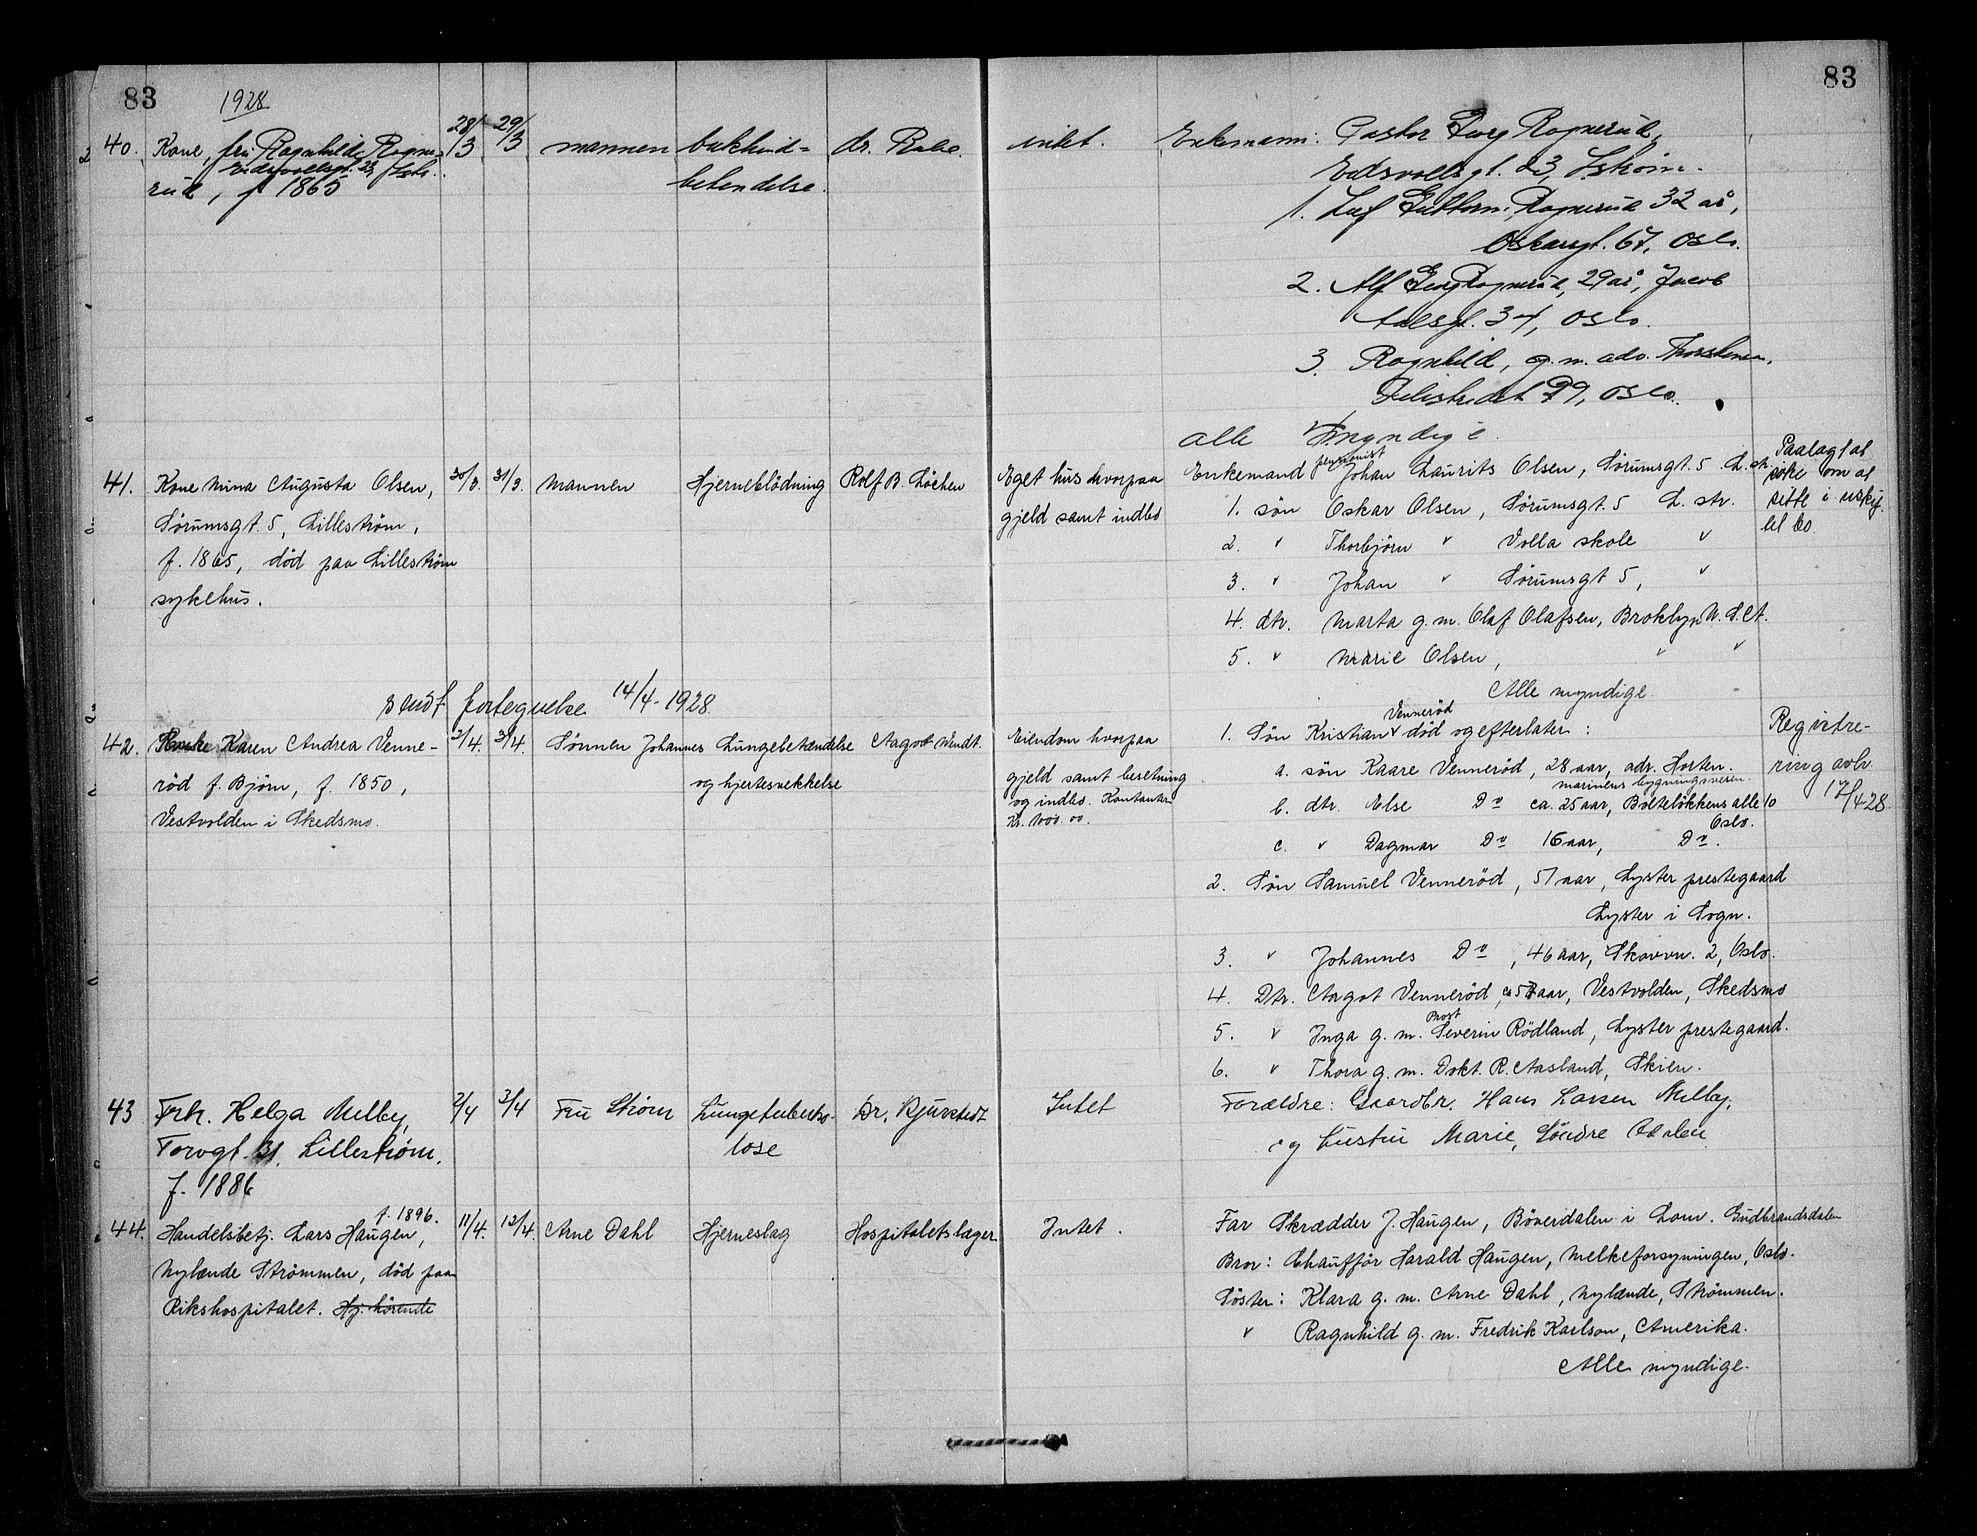 83
1928
83
40. Kone, fru Ragnhild Rogne-
Eidsvollsgt. 23, Lstr.
rud, f. 1865
28/3 29/3 mannen bukhind-
betendelse.
dr.
intet.
Enkemann: Pastor Georg Rognerud,
Eidsvollsgt. 23, Lstrøm.
1. Leif Guttorm Rognerud 32 år,
Oscarsgt. 67, Oslo.
2. Alf Georg Rognerud, 29 år, Jacob
Aalsgt. 34, Oslo.
3. Ragnhild, g.m. adv. Thorstensen,
Pilestredet 99, Oslo.
alle myndige.
41. Kone Mina Augusta Olsen,
Sørumsgt. 5, Lillestrøm,
f. 1865, død paa Lillestrøm
sykehus.
30/3. 31/3. Mannen Hjerneblödning Rolf B. Löchen
Eget hus hvorpaa
gjeld samt indbo
pensionist
Enkemand Johan Laurits Olsen, Sörumsgt. 5 L.str.
1. søn Oskar Olsen, Sörumsgt. 5 L. str.
2. " Thorbjörn " Volla skole "
3. " Johan " Sörumsgt 5, "
4. dtr. Marta g.m. Olaf Olafsen, Broklyn U.S.A.
5. " Marie Olsen, " "
Alle myndige.
Paalagt at
söke om at
sitte i uskif-
tet bo.
Smdf fortegnelse 14/4-1928
42. Karen Andrea Venne-
röd f. Bjørn, f. 1850,
Vestvolden i Skedsmo.
2/4. 3/4. Sønnen Johannes Lungebetændelse Aagot Wendt.
og hjertesvekkelse
Eiendom hvorpaa
gjeld samt besetning
og indbo. Kontanter
Kr. 1000.00.
Vennerød
1. Søn Kristian død og efterlater:
a. søn Kaare Vennerød, 28 aar, adr. Horten.
marinens bygningsvesen
b. dtr. Else Do ca. 25 aar, Bolteløkkens alle 10
Oslo.
c. " Dagmar Do 16 aar, Do.
2. Søn Samuel Vennerød, 51 aar, Lyster prestegaard
Lyster i Sogn.
3. " Johannes Do, 46 aar, Skovvn. 2, Oslo.
4. Dtr. Aagot Vennerød, aar, Vestvolden, Skedsmo
Prost
5. " Inga g.m. Severin Rödland, Lyster prestegaard.
6. " Thora g.m. Dokt. R. Aasland, Skien.
Registre-
ring avh.
17/4 28.
43 Frk. Helga Melby,
Torvgt. 31, Lillestrøm,
f. 1886
2/4 3/4 Fru Strøm Lungetuberku-
lose
Dr. Bjurstedt
Intet
Forældre: Gaardbr. Hans Larsen Melby,
og hustru Marie, Søndre
f. 1896.
44. Handelsbetj. Lars Haugen,
Nylænde Strømmen, død paa
Rikshospitalet. Hj. hörende
11/4. 12/4. Arne Dahl Hjerneslag Hospitalets læger
Intet.
Far Skrædder J. Haugen, Böverdalen i Lom. Gudbrandsdalen
Bror: Chauffør Harald Haugen, Melkeforsyningen, Oslo.
Söster: Klara g.m. Arne Dahl, Nylænde, Strømmen.
" Ragnhild g.m. Fredrik Karlson, Amerika.
Alle myndige.